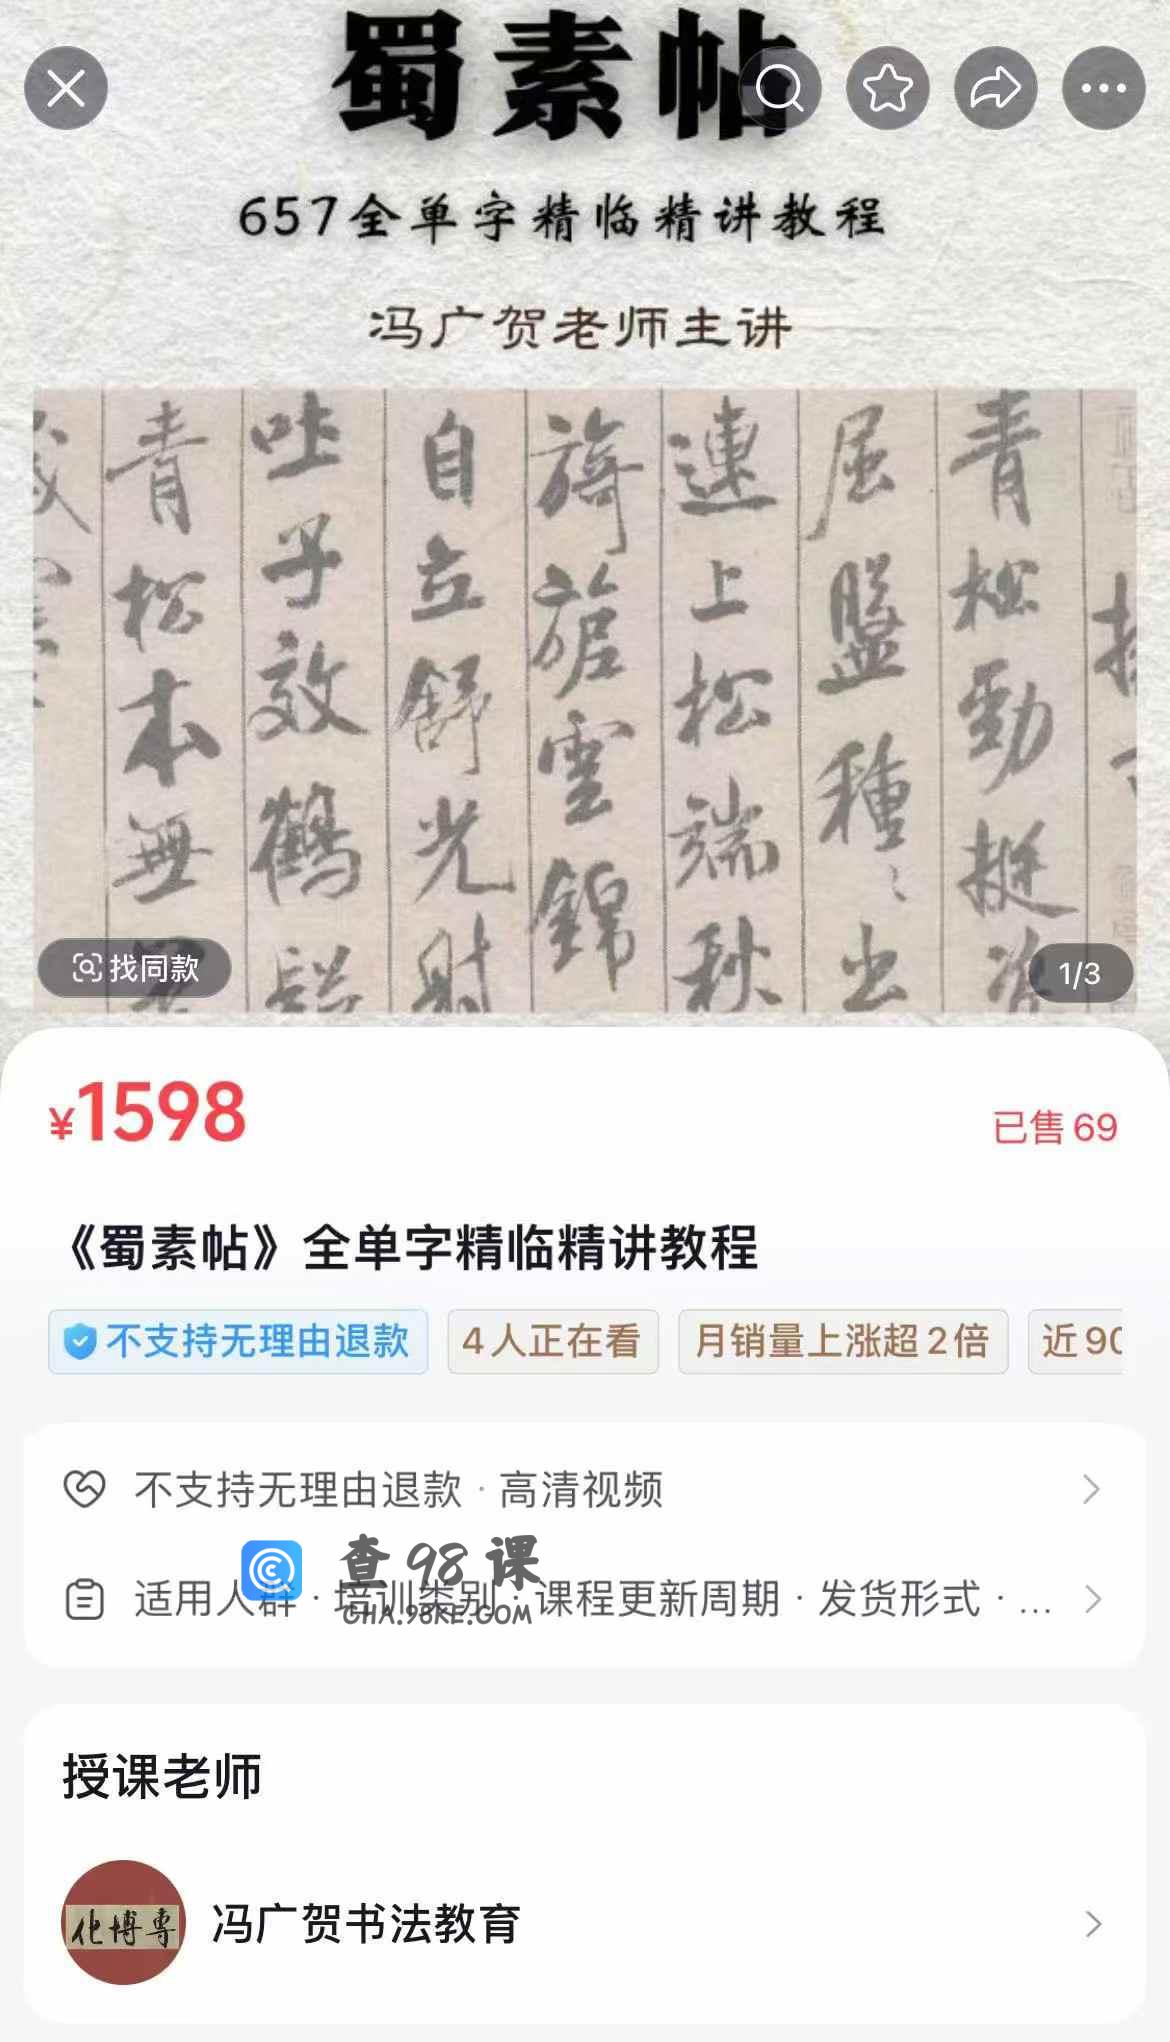 蜀素帖
657全单字精临精讲教程
冯广贺老师主讲
青松劲挺姿
屈盤種〻出
連上松端秋
旖旎雲錦
自立舒光射
吐子效鶴
青松本無
找同款
1/3
¥1598
已售 69
《蜀素帖》全单字精临精讲教程
不支持无理由退款
4 人正在看
月销量上涨超 2 倍
近 90
不支持无理由退款 · 高清视频
查98课
CHA.98KE.COM
适用人群 · 培训类别 · 课程更新周期 · 发货形式 · ...
授课老师
化博專
冯广贺书法教育